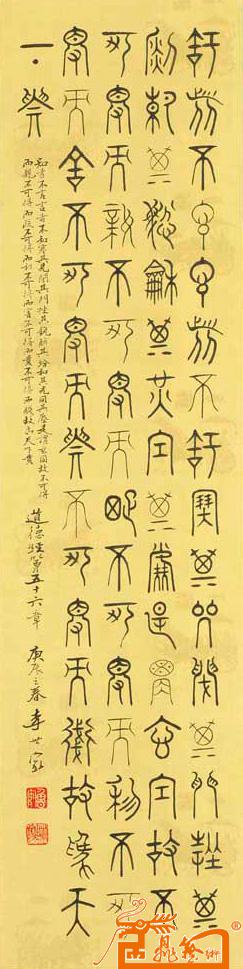 知者不言言者不知塞其兌閉其門挫其
銳解其紛和其光同其塵是謂玄同故不
可得而親不可得而疏不可得而利不可
得而害不可得而貴不可得而賤故為天
下貴
知者不言言者不知塞其兌閉其門挫其銳解其紛和其光同其塵是謂玄同故不可得
而親不可得而疏不可得而利不可得而害不可得而貴不可得而賤故為天下貴
道德經第五十六章 庚辰之春 李世